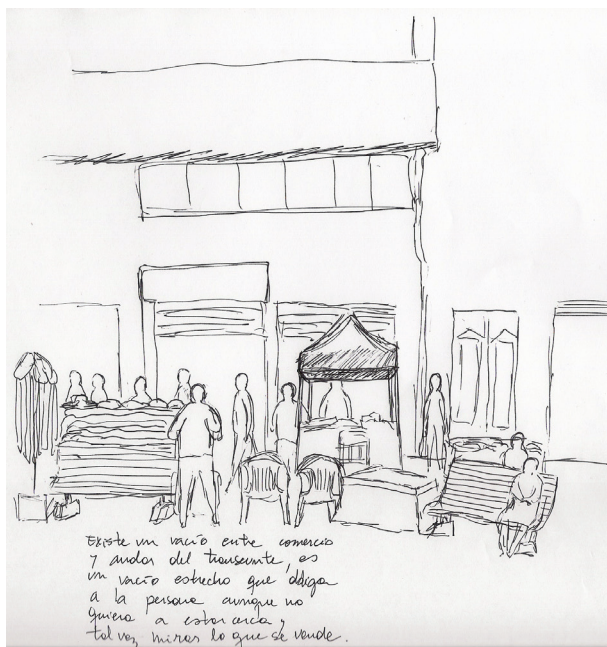 Existe un vacío entre comercio
y andar del transeunte, es
un vacío estrecho que obliga
a la persona aunque no
quiera a estar cerca y
tal vez mirar lo que se vende.